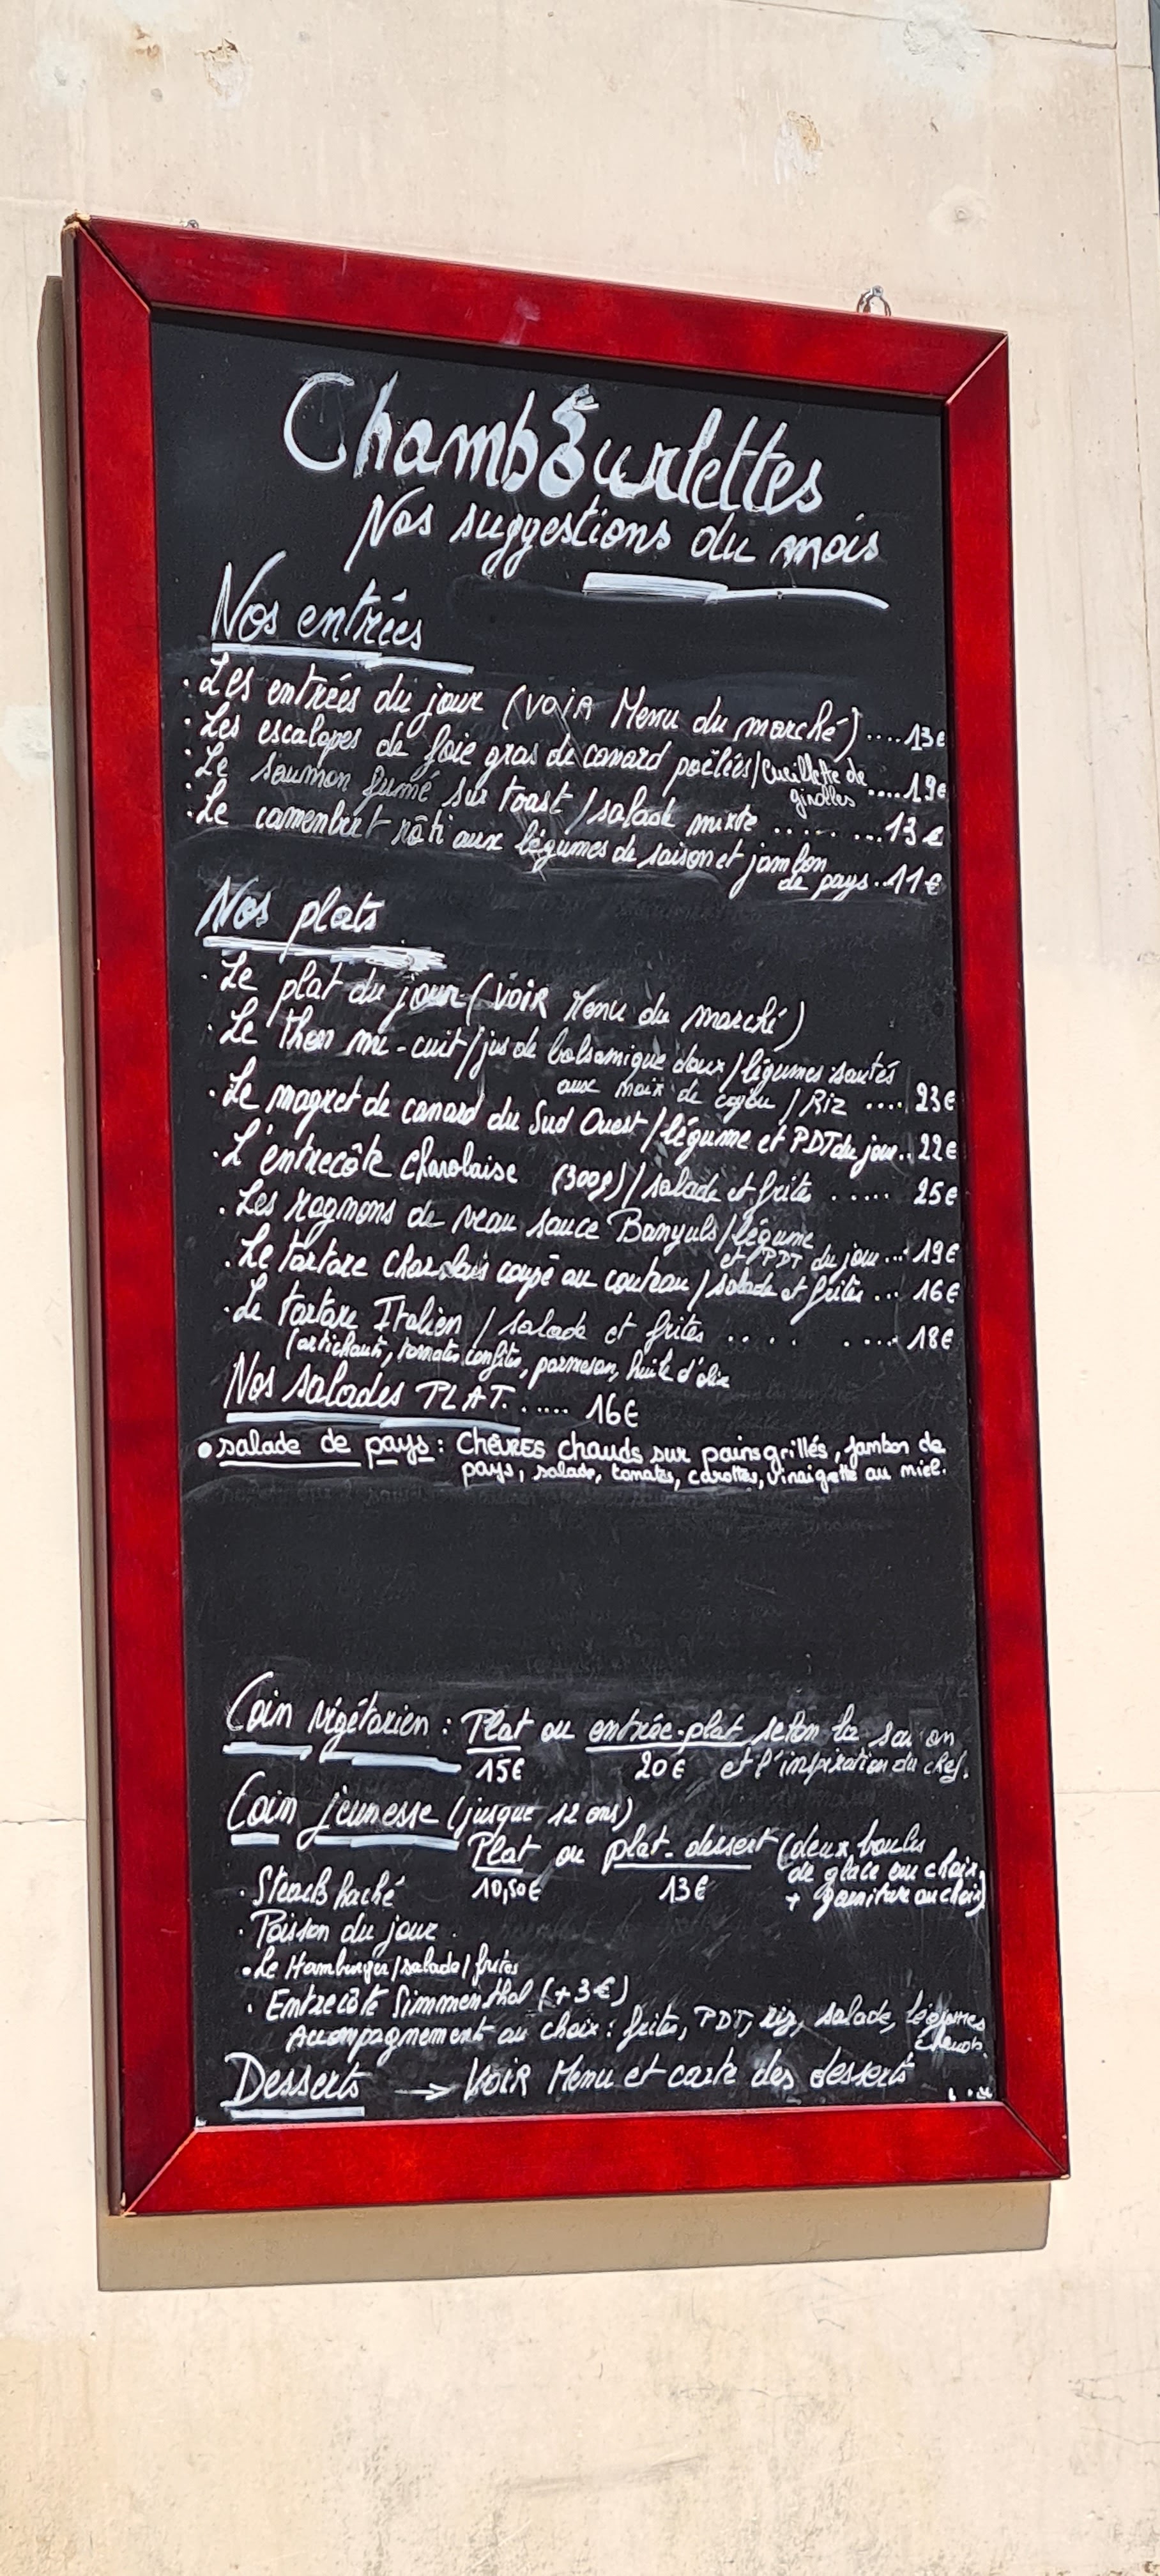 Chambourlettes
Nos suggestions du mois
Nos entrées
. Les entrées du jour (voir Menu du marché) ....13€
. Les escalopes de foie gras de canard poêlées/Cueillette de girolles .....19€
. Le saumon fumé sur toast / salade mixte ........ 13€
. Le camembert rôti aux légumes de saison et jambon
de pays ..11€
Nos plats
. Le plat du jour (voir Menu du marché)
. Le thon mi-cuit/jus de balsamique doux/légumes sautés
aux noix de cajou / Riz .... 23€
. Le magret de canard du Sud Ouest/légume et PDT du jour..22€
. L'entrecôte charolaise (300g)/salade et frites ..... 25€
. Les rognons de veau sauce Banyuls/légume
et PDT du jour...19€
. Le tartare charolais coupé au couteau/salade et frites ... 16€
. Le tartare Italien / salade et frites .... .... 18€
(artichauts, tomates confites, parmesan, huile d'olive
Nos salades PLAT. ..... 16€
• salade de pays : Chèvres chauds sur pains grillés, jambon de
pays, salade, tomates, carottes, vinaigrette au miel.
Coin végétarien : Plat ou entrée-plat selon la saison
15€ 20€ et l'inspiration du chef.
Coin jeunesse (jusque 12 ans)
Plat ou plat-dessert (deux boules
de glace au choix
10,50€ 13€ + garniture au choix)
. Steack haché
. Poisson du jour
. Le Hamburger/salade/frites
. Entrecôte Simmenthal (+3€)
Accompagnement au choix : frites, PDT, riz, salade, légumes
Desserts → Voir Menu et carte des desserts